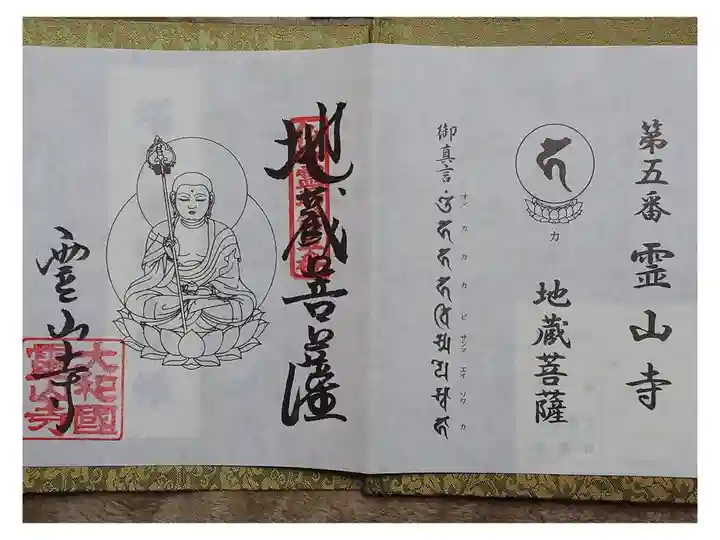 第五番 霊山寺
カ
地蔵菩薩
御真言
オン カカカ ビ サンマ エイ ソワ カ
地蔵菩薩
霊山寺
大和國
霊山寺